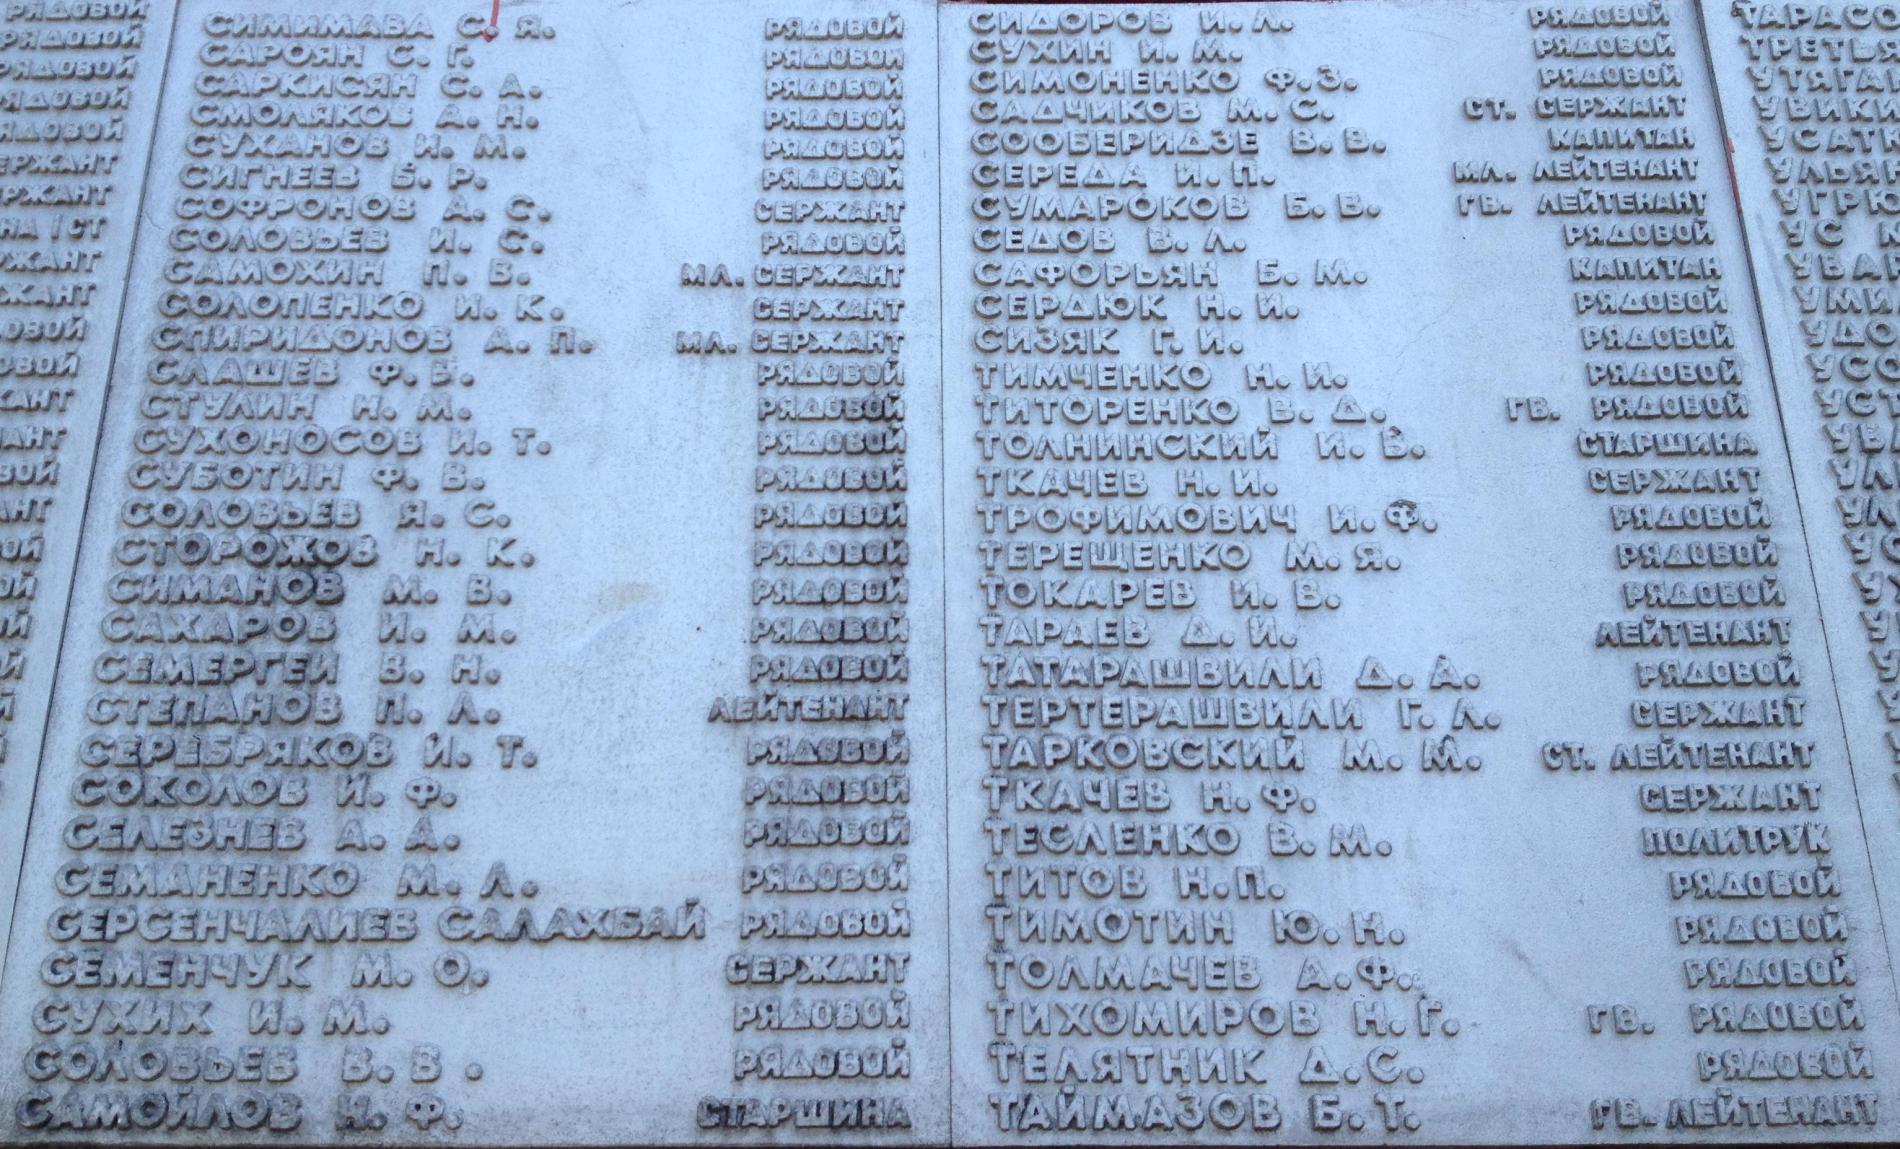 СИМИМАВА С. Я. РЯДОВОЙ
САРОЯН С. Г. РЯДОВОЙ
САРКИСЯН С. А. РЯДОВОЙ
СМОЛЯКОВ А. Н. РЯДОВОЙ
СУХАНОВ И. М. РЯДОВОЙ
СИГНЕЕВ Б. Р. РЯДОВОЙ
СОФРОНОВ А. С. СЕРЖАНТ
СОЛОВЬЕВ И. С. РЯДОВОЙ
САМОХИН П. В. МЛ. СЕРЖАНТ
СОЛОПЕНКО И. К. СЕРЖАНТ
СПИРИДОНОВ А. П. МЛ. СЕРЖАНТ
СЛАШЕВ Ф. Е. РЯДОВОЙ
СТУЛИН Н. М. РЯДОВОЙ
СУХОНОСОВ И. Т. РЯДОВОЙ
СУБОТИН Ф. В. РЯДОВОЙ
СОЛОВЬЕВ Я. С. РЯДОВОЙ
СТОРОЖОВ Н. К. РЯДОВОЙ
СИМАНОВ М. В. РЯДОВОЙ
САХАРОВ И. М. РЯДОВОЙ
СЕМЕРГЕЙ В. Н. РЯДОВОЙ
СТЕПАНОВ П. Л. ЛЕЙТЕНАНТ
СЕРЕБРЯКОВ И. Т. РЯДОВОЙ
СОКОЛОВ И. Ф. РЯДОВОЙ
СЕЛЕЗНЕВ А. А. РЯДОВОЙ
СЕМАНЕНКО М. Л. РЯДОВОЙ
СЕРСЕНЧАЛИЕВ САЛАХБАЙ РЯДОВОЙ
СЕМЕНЧУК М. О. СЕРЖАНТ
СУХИХ И. М. РЯДОВОЙ
СОЛОВЬЕВ В. В. РЯДОВОЙ
САМОЙЛОВ Н. Ф. СТАРШИНА
СИДОРОВ И. Л. РЯДОВОЙ
СУХИН И. М. РЯДОВОЙ
СИМОНЕНКО Ф. З. РЯДОВОЙ
САДЧИКОВ М. С. СТ. СЕРЖАНТ
СООБЕРИДЗЕ В. В. КАПИТАН
СЕРЕДА И. П. МЛ. ЛЕЙТЕНАНТ
СУМАРОКОВ Б. В. ГВ. ЛЕЙТЕНАНТ
СЕДОВ В. Л. РЯДОВОЙ
САФОРЬЯН Б. М. КАПИТАН
СЕРДЮК Н. И. РЯДОВОЙ
СИЗЯК Г. И. РЯДОВОЙ
ТИМЧЕНКО Н. И. РЯДОВОЙ
ТИТОРЕНКО В. Д. ГВ. РЯДОВОЙ
ТОЛНИНСКИЙ И. В. СТАРШИНА
ТКАЧЕВ Н. И. СЕРЖАНТ
ТРОФИМОВИЧ И. Ф. РЯДОВОЙ
ТЕРЕЩЕНКО М. Я. РЯДОВОЙ
ТОКАРЕВ И. В. РЯДОВОЙ
ТАРАЕВ Д. И. ЛЕЙТЕНАНТ
ТАТАРАШВИЛИ Д. А. РЯДОВОЙ
ТЕРТЕРАШВИЛИ Г. Л. СЕРЖАНТ
ТАРКОВСКИЙ М. М. СТ. ЛЕЙТЕНАНТ
ТКАЧЕВ Н. Ф. СЕРЖАНТ
ТЕСЛЕНКО В. М. ПОЛИТРУК
ТИТОВ Н. П. РЯДОВОЙ
ТИМОТИН Ю. Н. РЯДОВОЙ
ТОЛМАЧЕВ А. Ф. РЯДОВОЙ
ТИХОМИРОВ Н. Г. ГВ. РЯДОВОЙ
ТЕЛЯТНИК Д. С. РЯДОВОЙ
ТАЙМАЗОВ Б. Т. ГВ. ЛЕЙТЕНАНТ